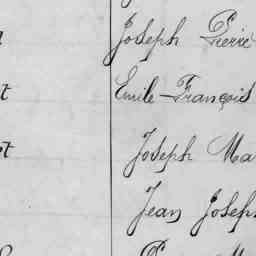 Joseph Pierre
Emile François
Joseph Ma
Jean Joseph